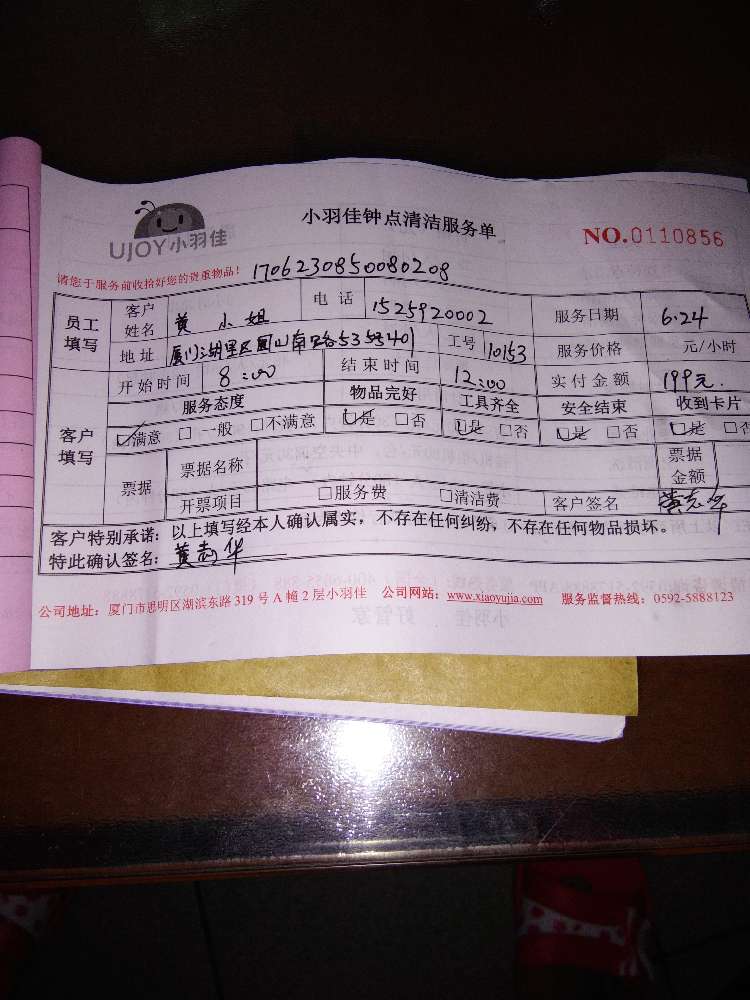 UJOY小羽佳
小羽佳钟点清洁服务单
NO.0110856
请您于服务前收拾好您的贵重物品! 1706230850080208
员工填写 客户姓名 黄小姐 电话 1525920002 服务日期 6.24
地址 厦门湖里区 南路 工号 10153 服务价格 元/小时
开始时间 8:00 结束时间 12:00 实付金额 199元
客户填写 服务态度 物品完好 工具齐全 安全结束 收到卡片
☑满意 □一般 □不满意 ☑是 □否 ☑是 □否 ☑是 □否 ☑是 □否
票据 票据名称 票据金额
开票项目 □服务费 □清洁费 客户签名 黄志华
客户特别承诺:以上填写经本人确认属实,不存在任何纠纷,不存在任何物品损坏。
特此确认签名:黄志华
公司地址:厦门市思明区湖滨东路319号A幢2层小羽佳 公司网站:www.xiaoyujia.com 服务监督热线:0592-5888123